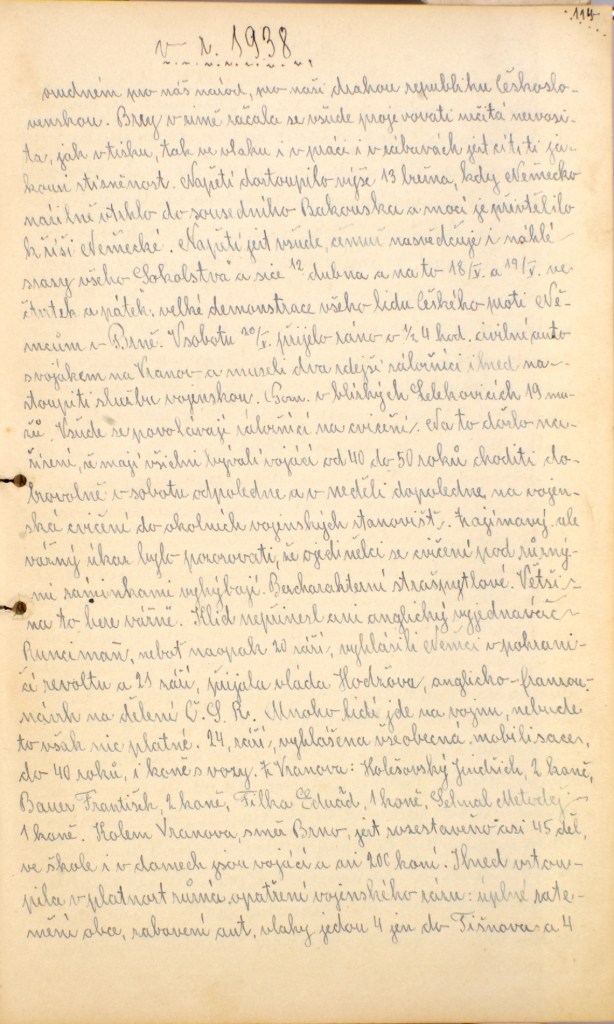 114
v r. 1938
osudném pro náš národ, pro naši drahou republiku Českoslo-
venskou. Brzy v zimě začala se všude projevovati určitá nervosi-
ta, jak v tisku, tak ve vlaku i v práci i v zábavách jest cítiti ja-
kousi stísněnost. Napětí dostoupilo výše 13 března, kdy Německo
násilně vtrhlo do sousedního Rakouska a mocí je přivtělilo
k říši Německé. Napětí jest všude, čemuž nasvědčuje i náhlé
srazy všeho "Sokolstva" a sice 12 dubna a na to 18/V. a 19/V. ve
čtvrtek a pátek, velké demonstrace všeho lidu Českého proti Ně-
mcům v Brně. V sobotu 20/V. přijelo ráno o ½ 4 hod. civilní auto
s vojákem na Vranov a museli dva zdejší záložníci ihned na-
stoupiti službu vojenskou. V blízkých Lelekovicích 19 mu-
žů. Všude se povolávají záložníci na cvičení. Na to došlo na-
řízení, že mají všichni bývalí vojáci od 40 do 50 roků choditi do-
brovolně v sobotu odpoledne a v neděli dopoledne, na vojen-
ská cvičení do okolních vojenských stanovišť. Zajímavý ale
vážný úkaz bylo pozorovati, že ojedinělci se cvičení pod různý-
mi záminkami vyhýbají. Bezcharakterní strašpytlové. Větši-
na to bere vážně. Klid nepřinesl ani anglický vyjednávač
Runciman, neboť naopak 20 září, vyhlásili Němci v pohrani-
čí revoltu a 21 září, přijala vláda Hodžova, anglicko-francou.
návrh na dělení Č.S.R. Mnoho lidí jde na vojnu, nebude
to však nic platné. 24, září, vyhlášena všeobecná mobilisace,
do 40 roků, i koně s vozy. Z Vranova: Holešovský Jindřich, 2 koně,
Bauer František, 2 koně, Filka Eduard, 1 koně, Sehnal Metoděj
1 koně. Kolem Vranova, směr Brno, jest rozestaveno asi 45 děl,
ve škole i v domech jsou vojáci a asi 200 koní. Ihned vstou-
pila v platnost různá opatření vojenského rázu: úplné zate-
mnění obce, zabavení aut, vlaky jedou 4 jen do Tišnova a 4